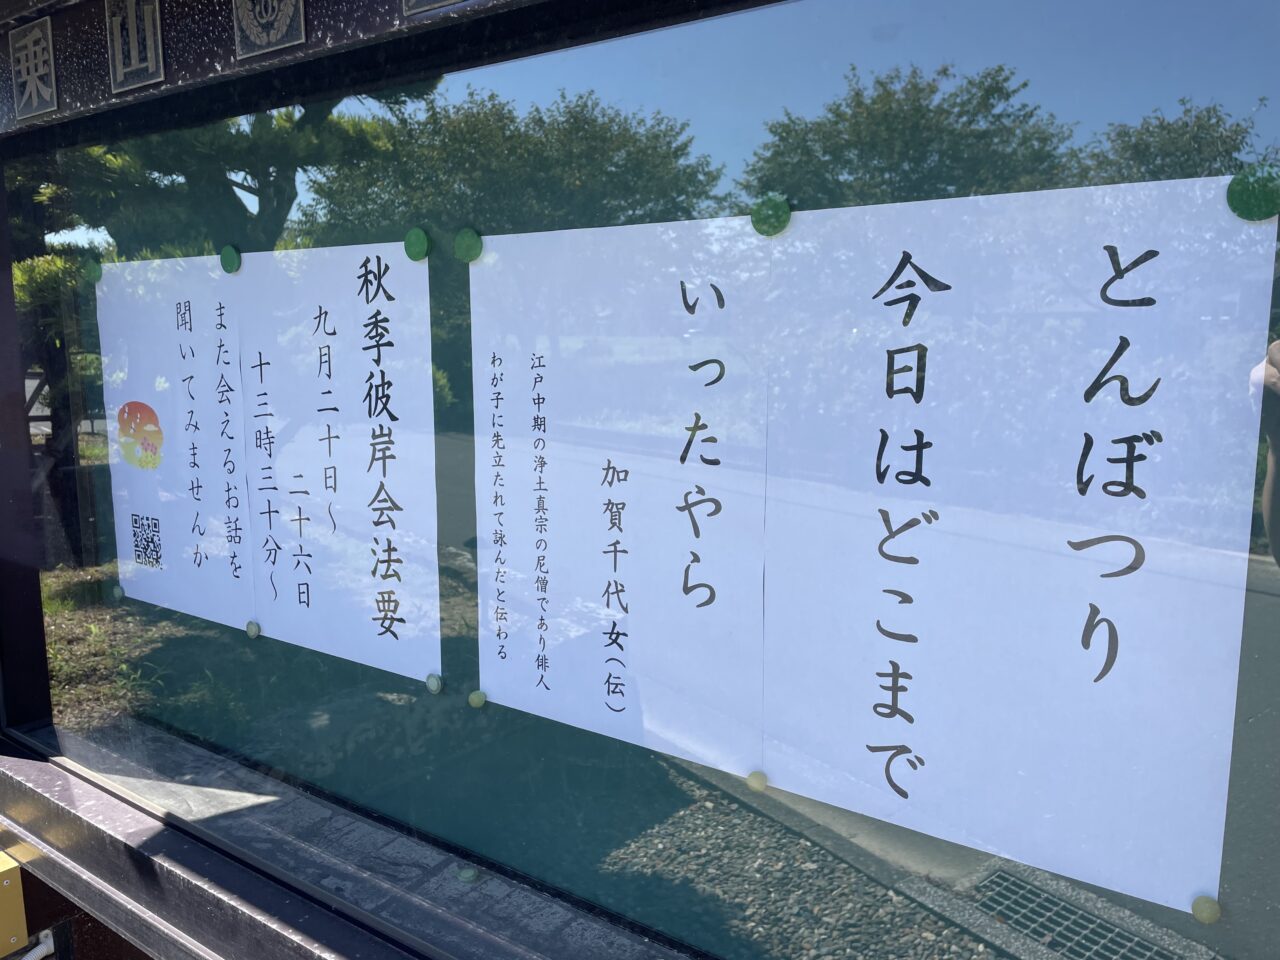 乗山
とんぼつり
今日はどこまで
いったやら
加賀千代女(伝)
江戸中期の浄土真宗の尼僧であり俳人
わが子に先立たれて詠んだと伝わる
秋季彼岸会法要
九月二十日~
二十六日
十三時三十分~
また会えるお話を
聞いてみませんか